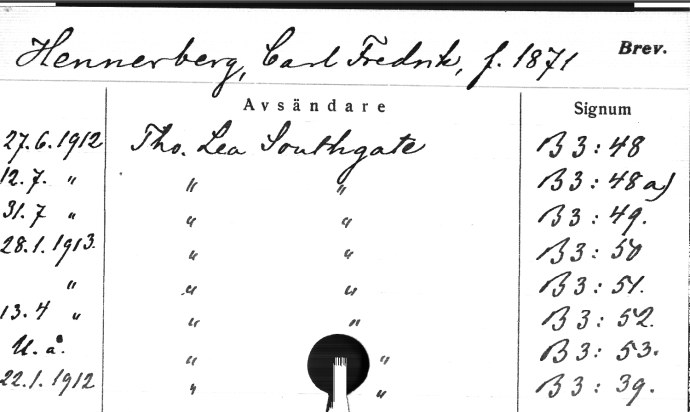 Hennerberg, Carl Fredrik, f. 1871 Brev.
Avsändare Signum
27.6.1912 Tho. Lea Southgate B 3: 48
12.7. " " " B 3: 48 a)
31.7 " " " B 3: 49.
28.1.1913. " " B 3: 50
" " " B 3: 51.
13.4 " " " B 3: 52.
U.å. " " B 3: 53.
22.1.1912 " " B 3: 39.